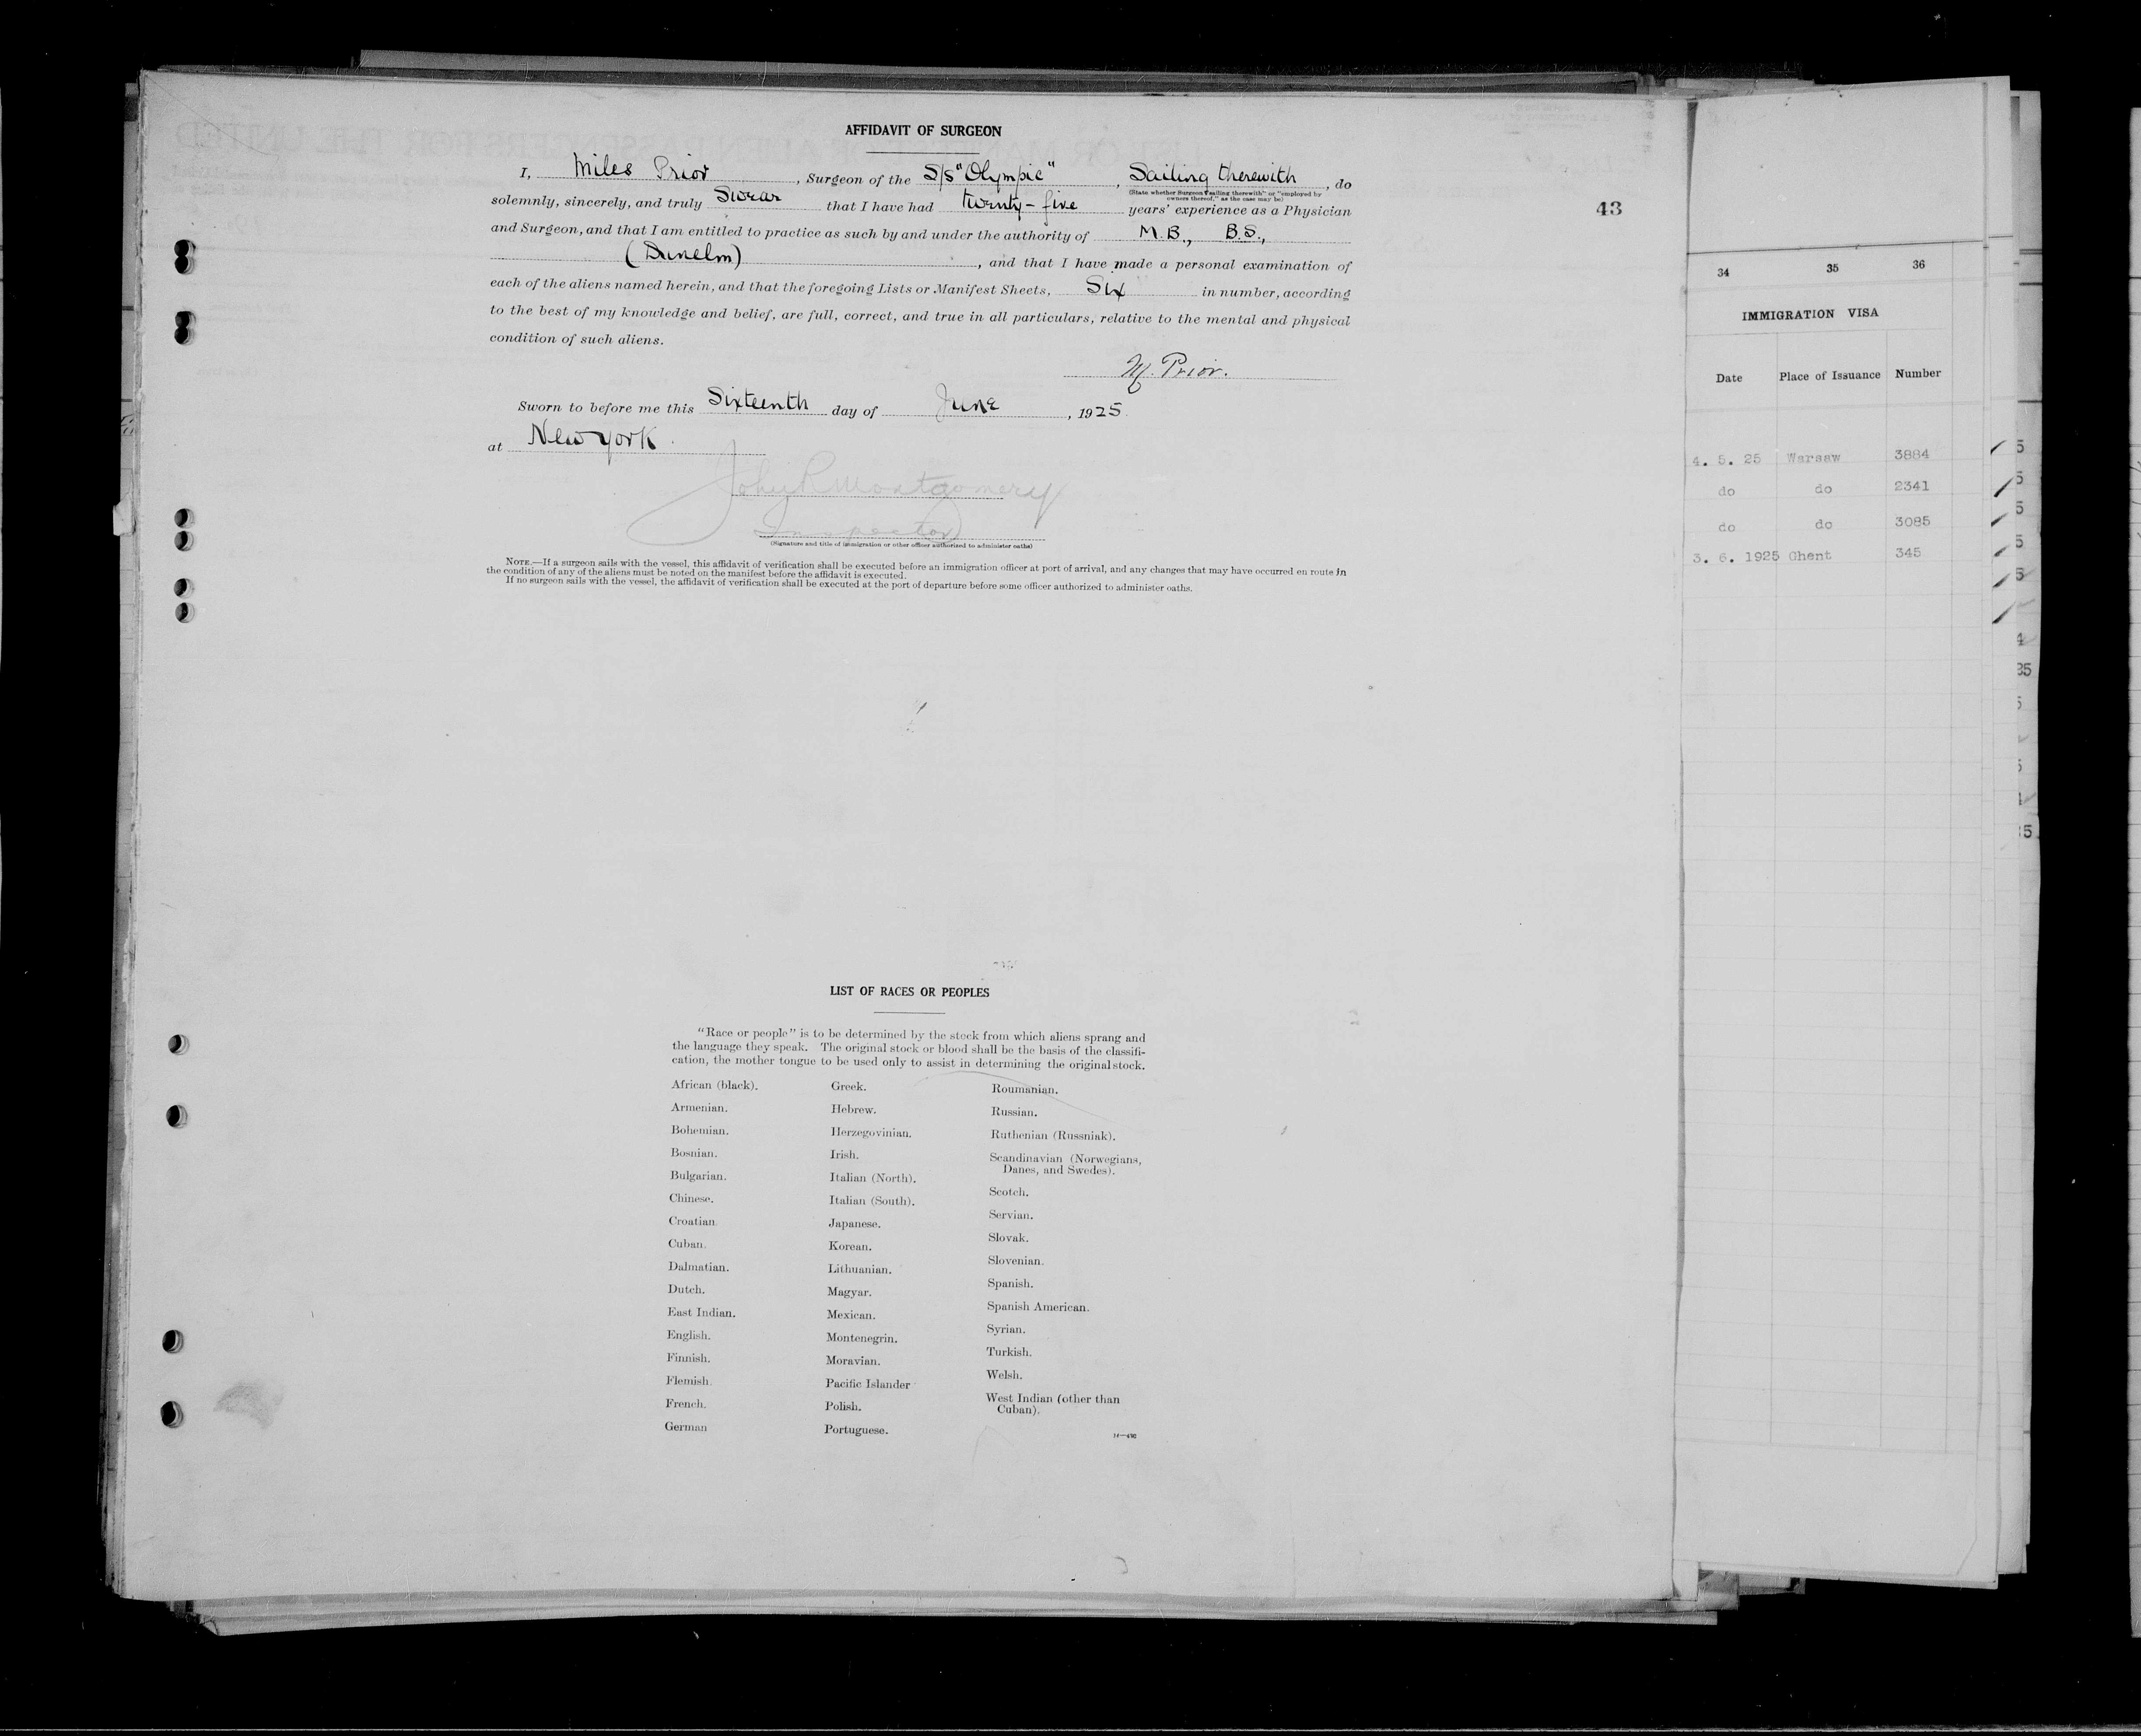 AFFIDAVIT OF SURGEON
I, Miles Prior, Surgeon of the S/S "Olympic", Sailing therewith, do
(State whether Surgeon "sailing therewith" or "employed by
owners thereof," as the case may be)
solemnly, sincerely, and truly Swear that I have had twenty-five years' experience as a Physician
and Surgeon, and that I am entitled to practice as such by and under the authority of M.B., B.S.,
(Dunelm), and that I have made a personal examination of
each of the aliens named herein, and that the foregoing Lists or Manifest Sheets, Six in number, according
to the best of my knowledge and belief, are full, correct, and true in all particulars, relative to the mental and physical
condition of such aliens.
M. Prior.
Sworn to before me this Sixteenth day of June, 1925.
at New York.
John R Montgomery
Inspector
(Signature and title of immigration or other officer authorized to administer oaths)
NOTE.—If a surgeon sails with the vessel, this affidavit of verification shall be executed before an immigration officer at port of arrival, and any changes that may have occurred en route in
the condition of any of the aliens must be noted on the manifest before the affidavit is executed.
If no surgeon sails with the vessel, the affidavit of verification shall be executed at the port of departure before some officer authorized to administer oaths.
43
LIST OF RACES OR PEOPLES
"Race or people" is to be determined by the stock from which aliens sprang and
the language they speak. The original stock or blood shall be the basis of the classifi-
cation, the mother tongue to be used only to assist in determining the original stock.
African (black).
Armenian.
Bohemian.
Bosnian.
Bulgarian.
Chinese.
Croatian.
Cuban.
Dalmatian.
Dutch.
East Indian.
English.
Finnish.
Flemish.
French.
German
Greek.
Hebrew.
Herzegovinian.
Irish.
Italian (North).
Italian (South).
Japanese.
Korean.
Lithuanian.
Magyar.
Mexican.
Montenegrin.
Moravian.
Pacific Islander
Polish.
Portuguese.
Roumanian.
Russian.
Ruthenian (Russniak).
Scandinavian (Norwegians,
Danes, and Swedes).
Scotch.
Servian.
Slovak.
Slovenian.
Spanish.
Spanish American.
Syrian.
Turkish.
Welsh.
West Indian (other than
Cuban).
34 35 36
IMMIGRATION VISA
Date Place of Issuance Number
4. 5. 25 Warsaw 3884
do do 2341
do do 3085
3. 6. 1925 Ghent 345